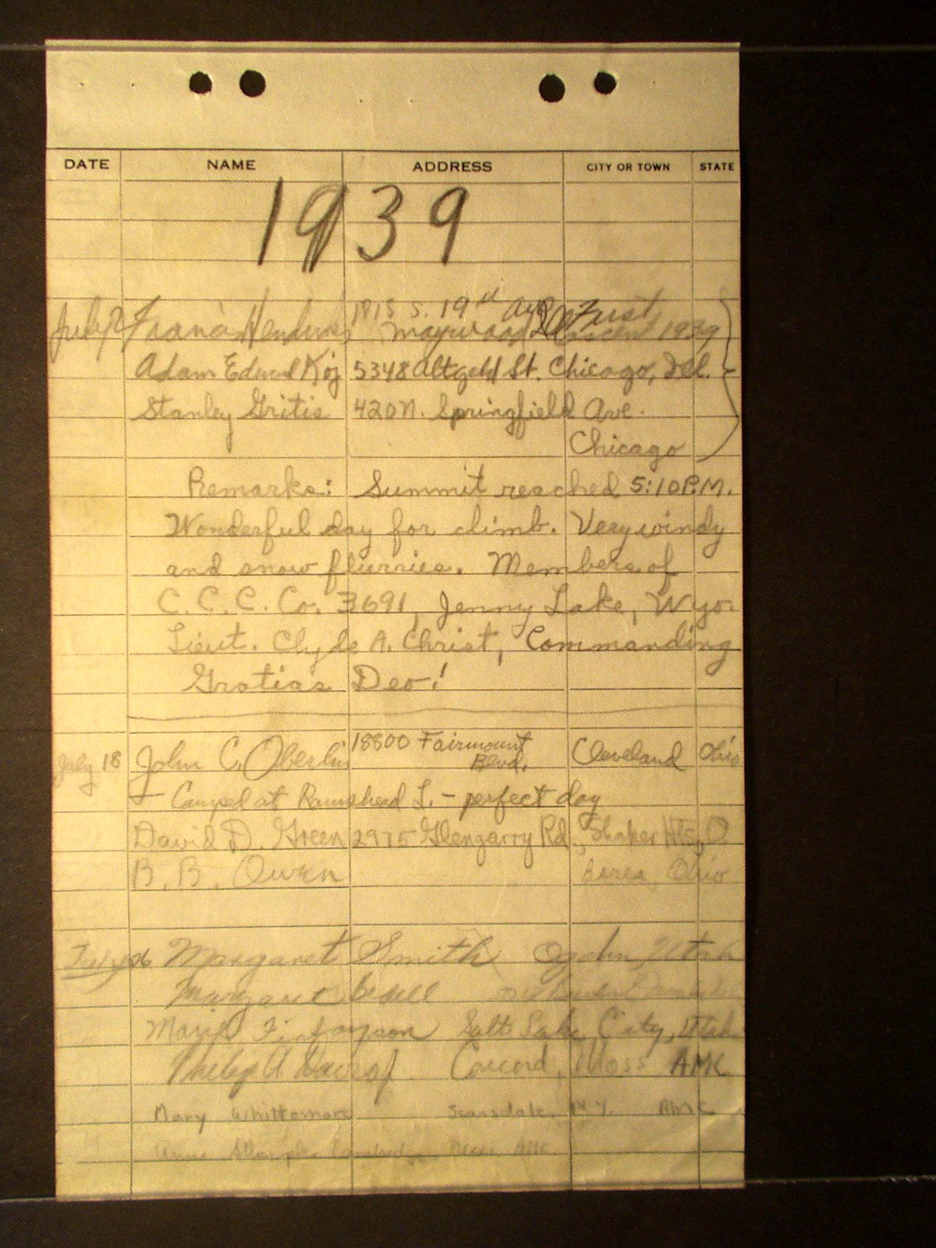 DATE NAME ADDRESS CITY OR TOWN STATE
1939
July Hendricks 1815 S. 19th Ave First
Maywood Ascent 1939
Adam Edward Koj 5348 Altgeld St. Chicago, Ill.
Stanley Gritis 420 N. Springfield Ave.
Chicago
Remarks: Summit reached 5:10 P.M.
Wonderful day for climb. Very windy
and snow flurries. Members of
C.C.C. Co. 3691, Jenny Lake, Wyo.
Lieut. Clyde A. Christ, Commanding
Gratias Deo!
July 18 John C. Oberlin 18800 Fairmount Blvd. Cleveland Ohio
Camped at Ramshead L. - perfect day
David D. Green 2975 Glengarry Rd., Shaker Hts, O
B. B. Owen Berea, Ohio
July 26 Margaret Smith Ogden, Utah
Margaret
Marie Salt Lake City, Utah
Philip Concord, Mass AMC
Mary Whittemore Scarsdale, N.Y. AMC
Anne Cambridge Mass AMC